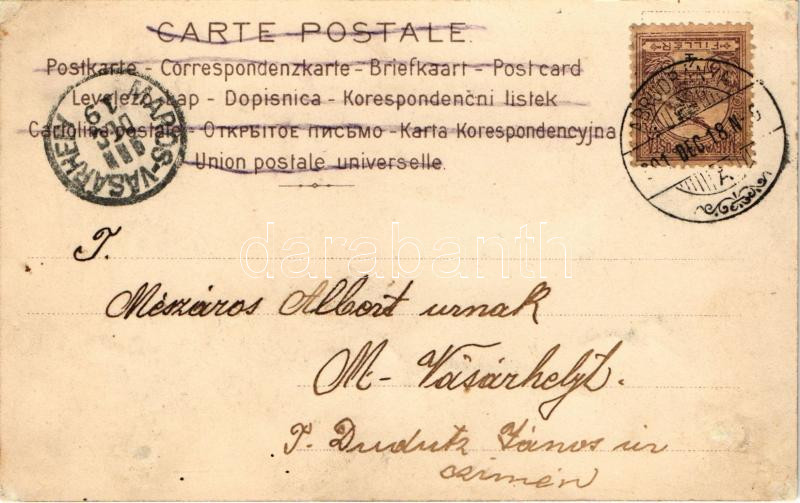 CARTE POSTALE.
Postkarte - Correspondenzkarte - Briefkaart - Post card
Levelező-Lap - Dopisnica - Korespondenční lístek
Cartolina postale - Открытое письмо - Karta Korespondencyjna
Union postale universelle.
MAROS-VÁSÁRHELY
DEC 19
FILLÉR
901 DEC 18 N
A
darabanth
T.
Mészáros Albert urnak
M-Vásárhelyt.
T. Dudutz János úr
czimén